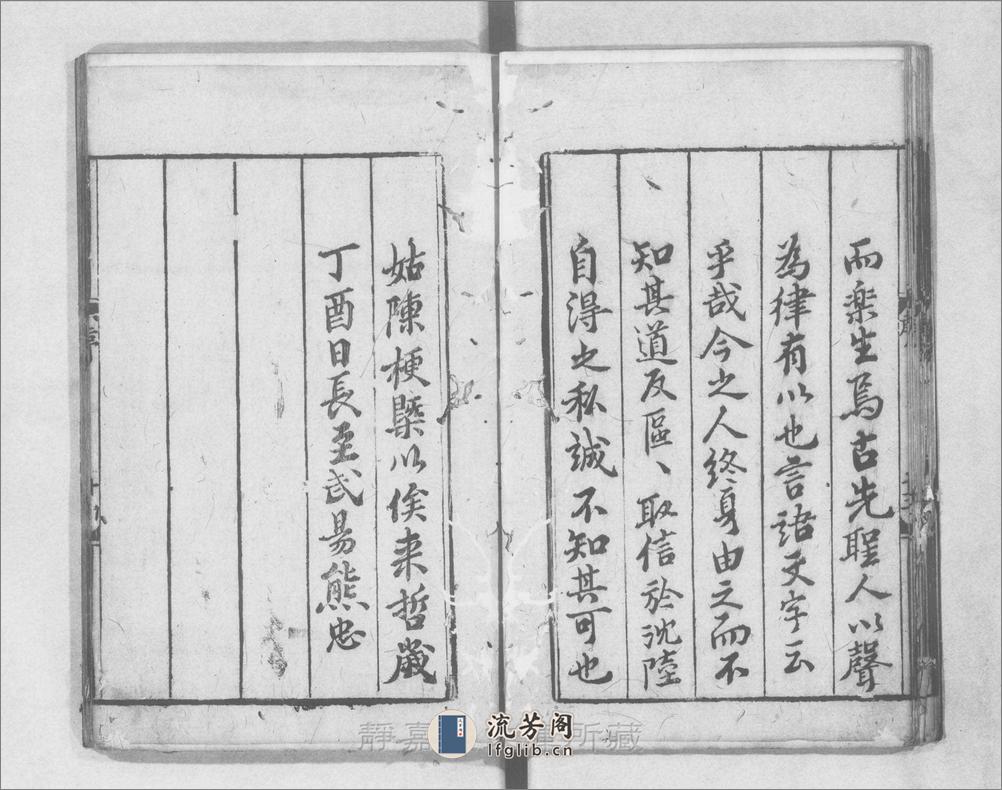 而楽生焉古先聖人以聲
為律有以也言語文字云
乎哉今之人終身由之而不
知其道反區、取信於沈陸
自得之私誠不知其可也
姑陳梗槩以俟来哲歳
丁酉日長至武昜熊忠
靜嘉
所藏
流芳阁
lfglib.cn